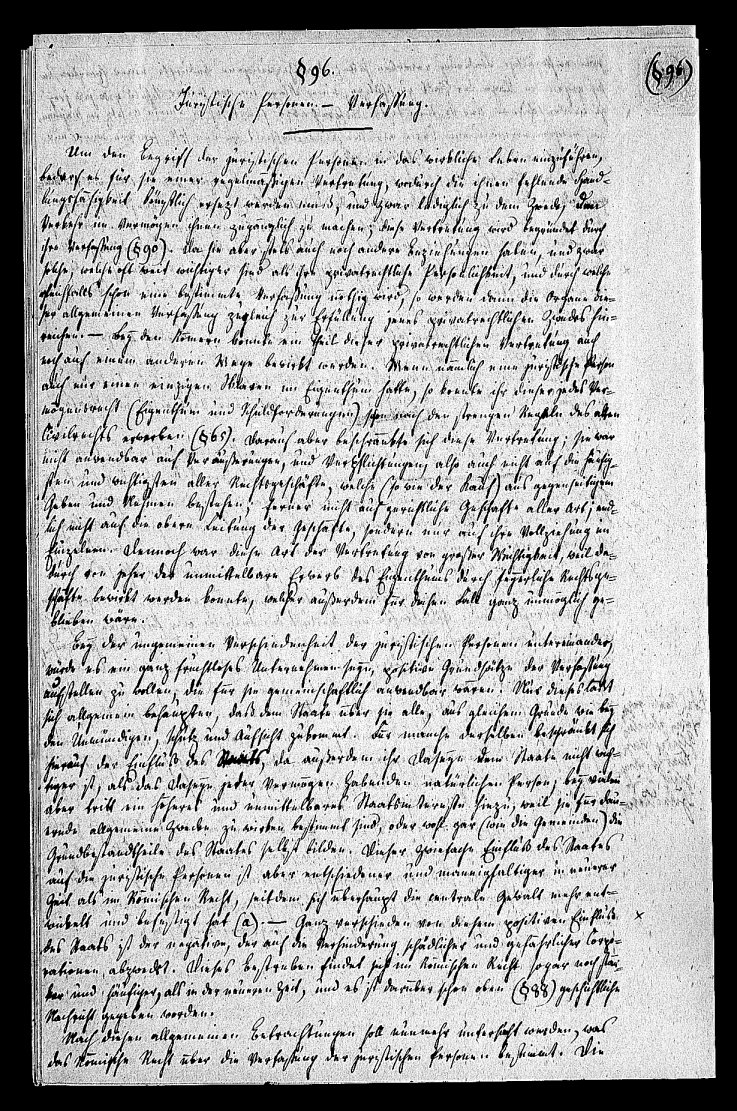 § 96.
(§ 96)
Juristische Personen. — Verfassung.
Um den Begriff der juristischen Personen in das wirkliche Leben einzuführen,
bedarf es für sie einer regelmäßigen Vertretung, wodurch die ihnen fehlende Hand-
lungsfähigkeit künstlich ersezt werden muß, und zwar lediglich zu dem Zweck, den
Verkehr im Vermögen ihnen zugänglich zu machen; diese Vertretung wird begründet durch
ihre Verfassung (§ 90). Da sie aber stets auch noch andere Beziehungen haben, und zwar
solche, welche oft weit wichtiger sind als ihre privatrechtliche Persönlichkeit, und durch welche
ebenfalls schon eine bestimmte Verfassung nöthig wird, so werden dann die Organe die-
ser allgemeinen Verfassung zugleich zur Erfüllung jenes privatrechtlichen Zweckes hin-
reichen. — Bey den Römern konnte ein Theil dieser privatrechtlichen Vertretung auch
noch auf einem anderen Wege bewirkt werden. Wenn nämlich eine juristische Person
auch nur einen einzigen Sklaven im Eigenthum hatte, so konnte ihr dieser jedes Ver-
mögensrecht (Eigenthum und Schuldforderungen) schon nach den strengen Regeln des alten
Civilrechts erwerben (§ 65). Darauf aber beschränkte sich diese Vertretung; sie war
nicht anwendbar auf Veräußerungen, und Verpflichtungen, also auch nicht auf die häufig-
sten und wichtigsten aller Rechtsgeschäfte, welche (so wie der Kauf) aus gegenseitigem
Geben und Nehmen bestehen; ferner nicht auf gerichtliche Geschäfte aller Art; end-
lich nicht auf die obere Leitung der Geschäfte, sondern nur auf ihre Vollziehung im
Einzelnen. Dennoch war diese Art der Vertretung von großer Wichtigkeit, weil da-
durch von jeher der unmittelbare Erwerb des Eigenthums durch feyerliche Rechtsge-
schäfte bewirkt werden konnte, welcher außerdem für diesen Fall ganz unmöglich ge-
blieben wäre.
Bey der ungemeinen Verschiedenheit der juristischen Personen untereinander,
würde es ein ganz fruchtloses Unternehmen seyn, positive Grundsätze der Verfassung
aufstellen zu wollen, die für sie gemeinschaftlich anwendbar wären. Nur dieses läßt
sich allgemein behaupten, daß dem Staate über sie alle, aus gleichem Grunde wie bey
den Unmündigen, Schutz und Aufsicht zukommt. Für manche derselben beschränkt sich
hierauf der Einfluß des Staats, da außerdem ihr Daseyn dem Staate nicht wich-
tiger ist, als das Daseyn jeder Vermögen habenden natürlichen Person; bey vielen
aber tritt ein höheres und unmittelbares Staatsinteresse hinzu, weil sie für dau-
ernde allgemeine Zwecke zu wirken bestimmt sind, oder wohl gar (wie die Gemeinden) die
Grundbestandtheile des Staates selbst bilden. Dieser zwiefache Einfluß des Staates
auf die juristische Personen ist aber entschiedener und mannigfaltiger in neuerer
Zeit als im Römischen Recht, seitdem sich überhaupt die centrale Gewalt mehr ent-
wickelt und befestigt hat (a). — Ganz verschieden von diesem positiven Einfluß
des Staats ist der negative, der auf die Verhinderung schädlicher und gefährlicher Corpo-
rationen abzweckt. Dieses Bestreben findet sich im Römischen Recht sogar noch stär-
ker und häufiger, als in der neueren Zeit, und es ist darüber schon oben (§ 88) geschichtliche
Nachricht gegeben worden.
Nach diesen allgemeinen Betrachtungen soll nunmehr untersucht werden, was
das Römische Recht über die Verfassung der juristischen Personen bestimmt. Die